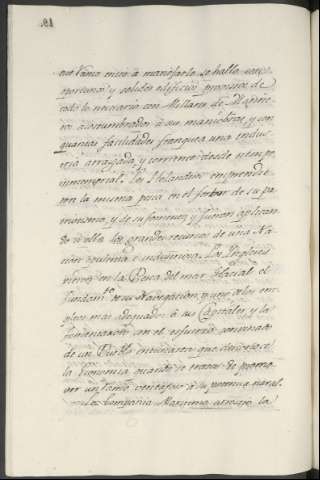 este ramo entró á manejarlo se halla con
oportunos y sólidos edificios provistos de
todo lo necesario con Millares de Marine-
ros acostumbrados á sus maniobras, y con
quantas facilidades franquea una indus-
tria arraigada y corriente desde tiempo
inmemorial. Los Holandeses emprendie-
ron la misma pesca en el fervor de su pa-
triotismo, y de su fomento, y fueron aplican-
do á ella los grandes recursos de una Na-
ción opulenta e industriosa. Los Ingleses
vieron en la Pesca del mar Glacial el
fundam.to de su Navegacion, y uno de los em-
pleos mas adequados á sus Capitales, y la
fomentaron con el esfuerzo
de un Pueblo entusiasta que
la Economia quando se trata de promo-
ver un ramo ventajoso á su potencia naval.
Compañia Maritima la